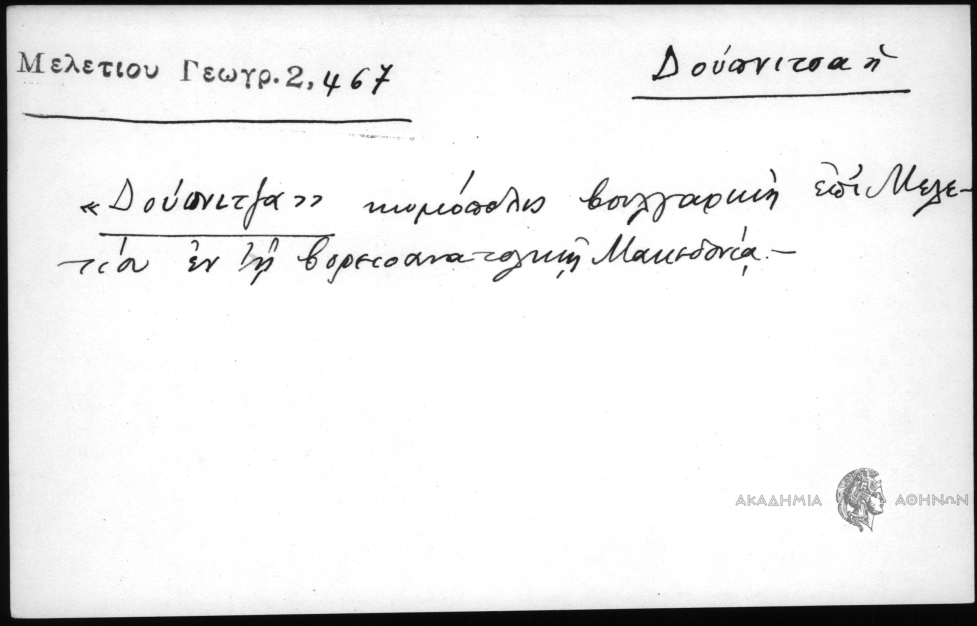 Μελετίου Γεωγρ. 2, 467
Δούπνιτσα ἡ
«Δούπνιτζα» κωμόπολις βουλγαρικὴ ἐπὶ Μελε-
τίου ἐν τῇ βορειοανατολικῇ Μακεδονίᾳ.-
ΑΚΑΔΗΜΙΑ ΑΘΗΝΩΝ